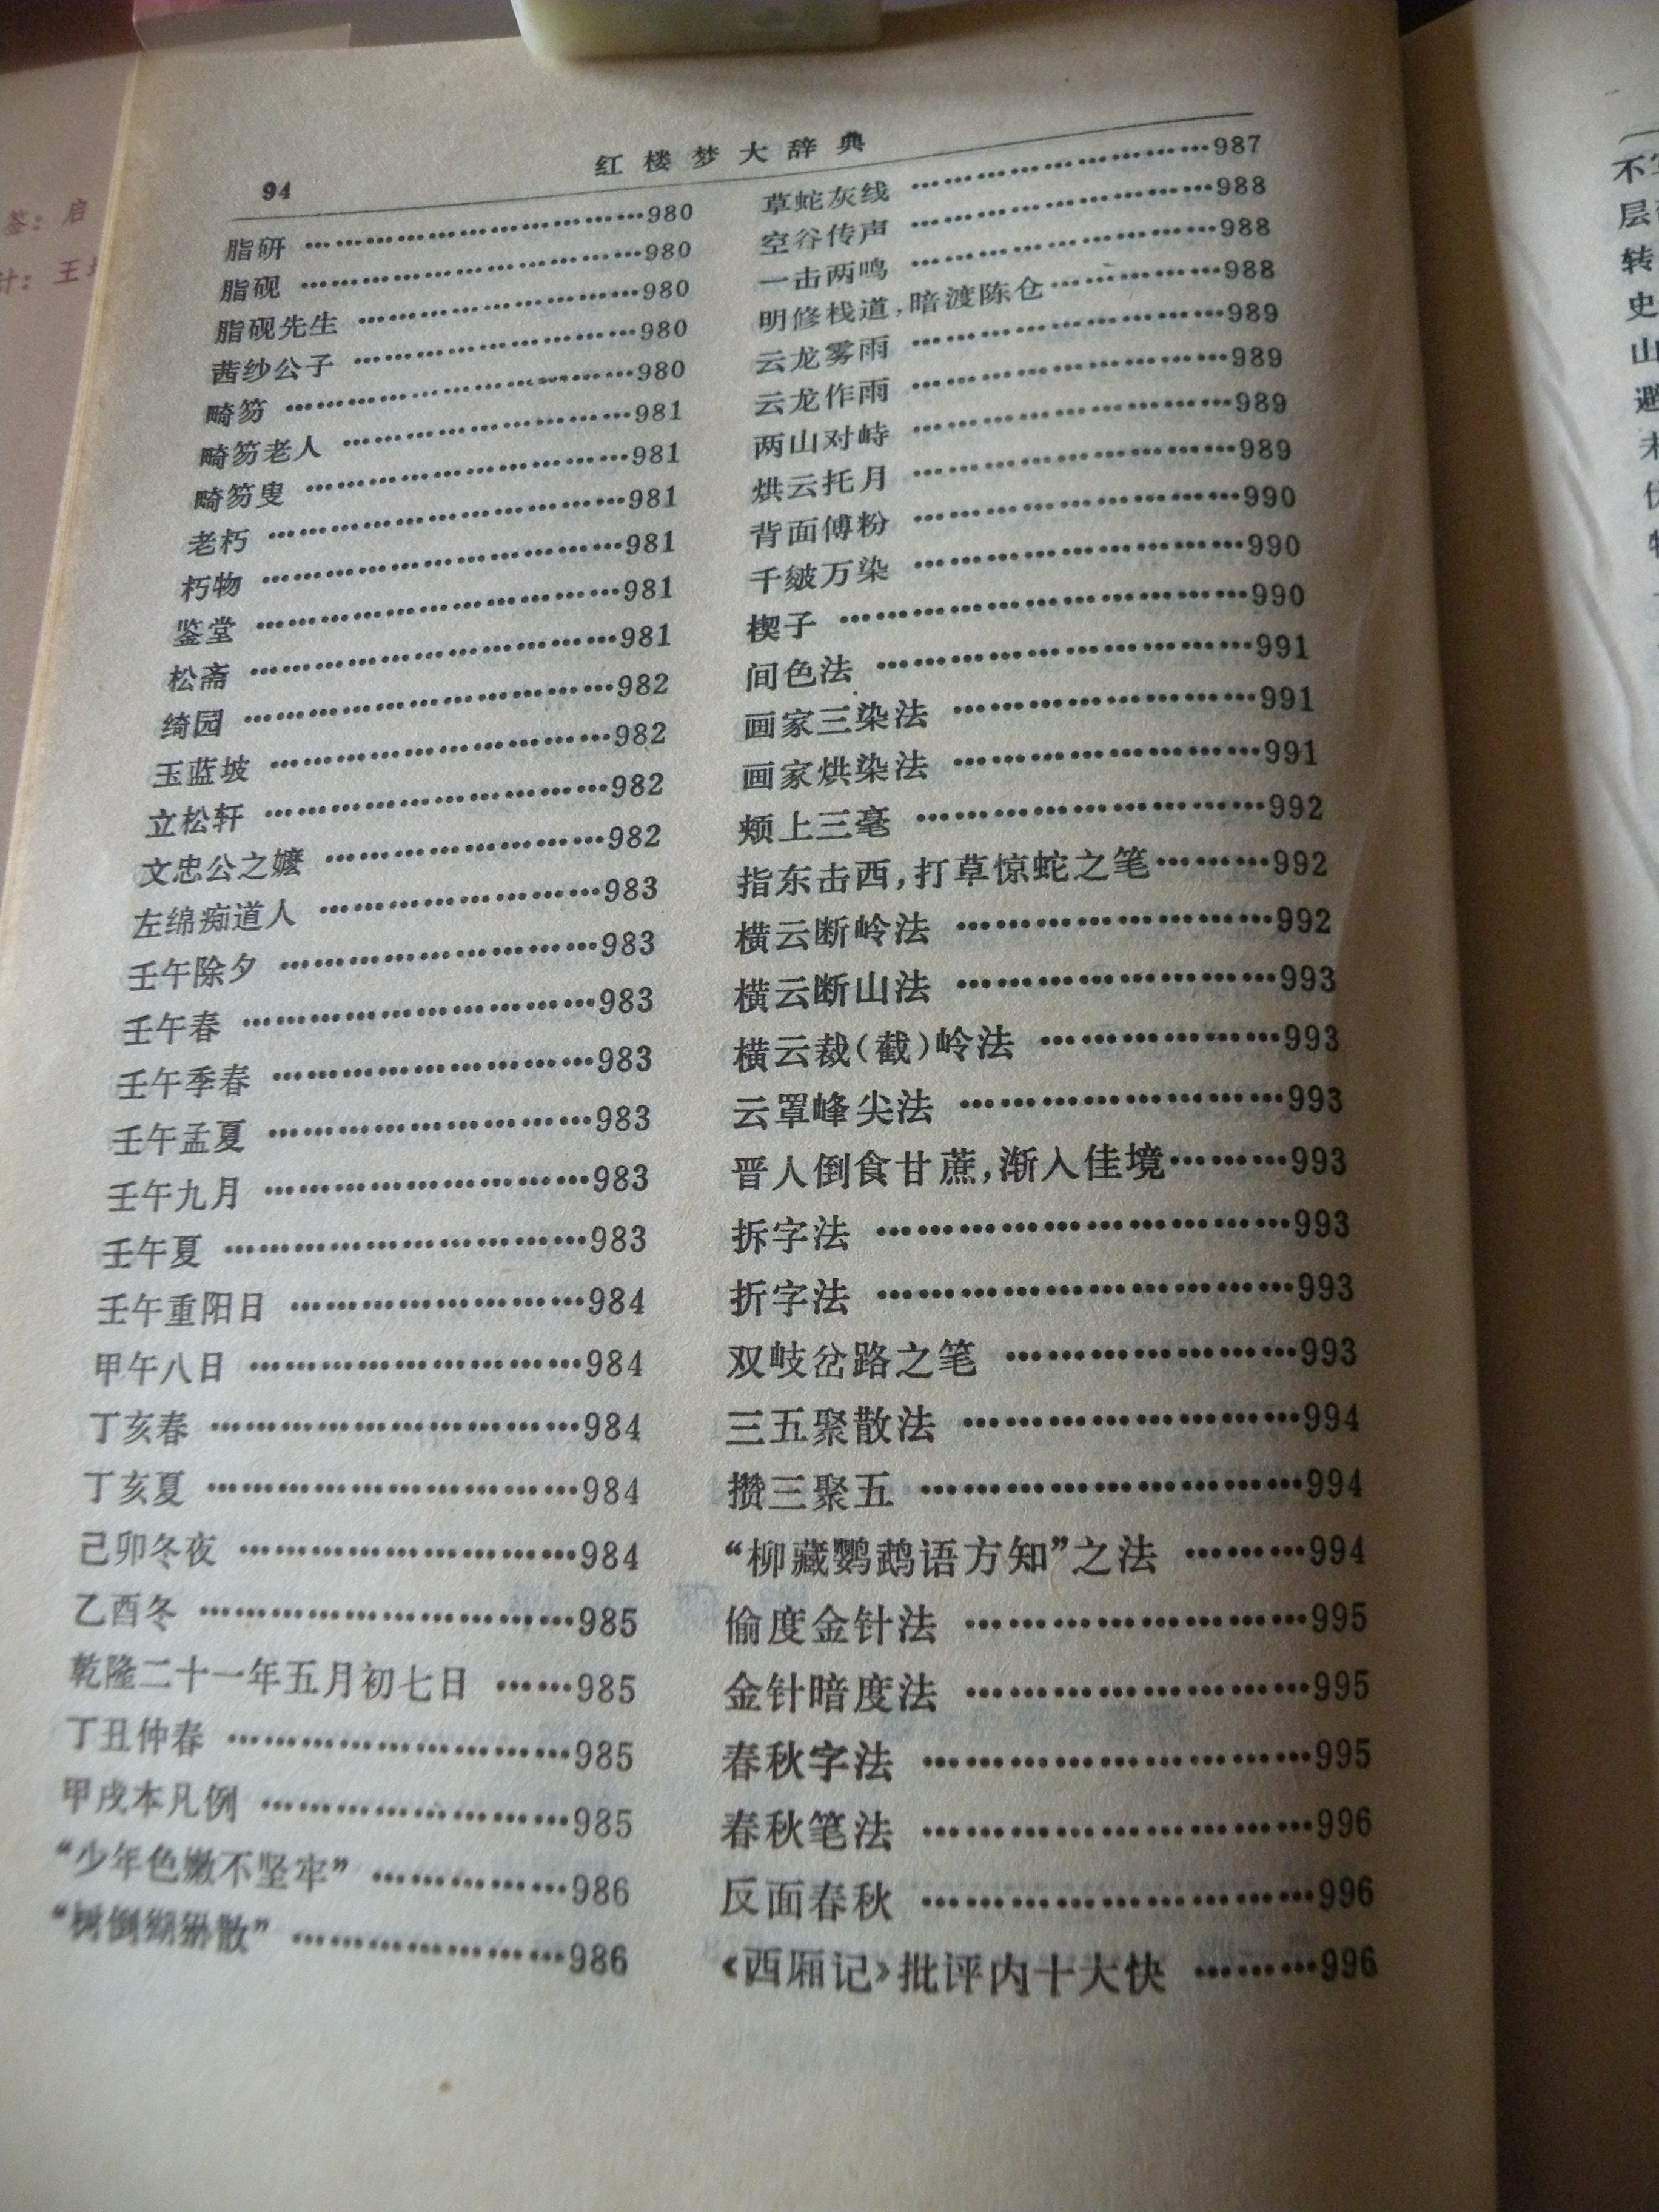 94
红楼梦大辞典
脂研 …………………………980
脂砚 …………………………980
脂砚先生 ……………………980
茜纱公子 ……………………980
畸笏 …………………………980
畸笏老人 ……………………981
畸笏叟 ………………………981
老朽 …………………………981
朽物 …………………………981
鉴堂 …………………………981
松斋 …………………………981
绮园 …………………………982
玉蓝坡 ………………………982
立松轩 ………………………982
文忠公之嬷 …………………982
左绵痴道人 …………………983
壬午除夕 ……………………983
壬午春 ………………………983
壬午季春 ……………………983
壬午孟夏 ……………………983
壬午九月 ……………………983
壬午夏 ………………………983
壬午重阳日 …………………984
甲午八日 ……………………984
丁亥春 ………………………984
丁亥夏 ………………………984
己卯冬夜 ……………………984
乙酉冬 ………………………985
乾隆二十一年五月初七日 ……985
丁丑仲春 ……………………985
甲戌本凡例 …………………985
“少年色嫩不坚牢” ……………986
“树倒猢狲散” …………………986
草蛇灰线 ……………………987
空谷传声 ……………………988
一击两鸣 ……………………988
明修栈道,暗渡陈仓…………988
云龙雾雨 ……………………989
云龙作雨 ……………………989
两山对峙 ……………………989
烘云托月 ……………………989
背面傅粉 ……………………990
千皴万染 ……………………990
楔子 …………………………990
间色法 ………………………991
画家三染法 …………………991
画家烘染法 …………………991
颊上三毫 ……………………992
指东击西,打草惊蛇之笔………992
横云断岭法 …………………992
横云断山法 …………………993
横云裁(截)岭法 ………………993
云罩峰尖法 …………………993
晋人倒食甘蔗,渐入佳境………993
拆字法 ………………………993
折字法 ………………………993
双岐岔路之笔 ………………993
三五聚散法 …………………994
攒三聚五 ……………………994
“柳藏鹦鹉语方知”之法 ………994
偷度金针法 …………………995
金针暗度法 …………………995
春秋字法 ……………………995
春秋笔法 ……………………996
反面春秋 ……………………996
《西厢记》批评内十大快 ………996